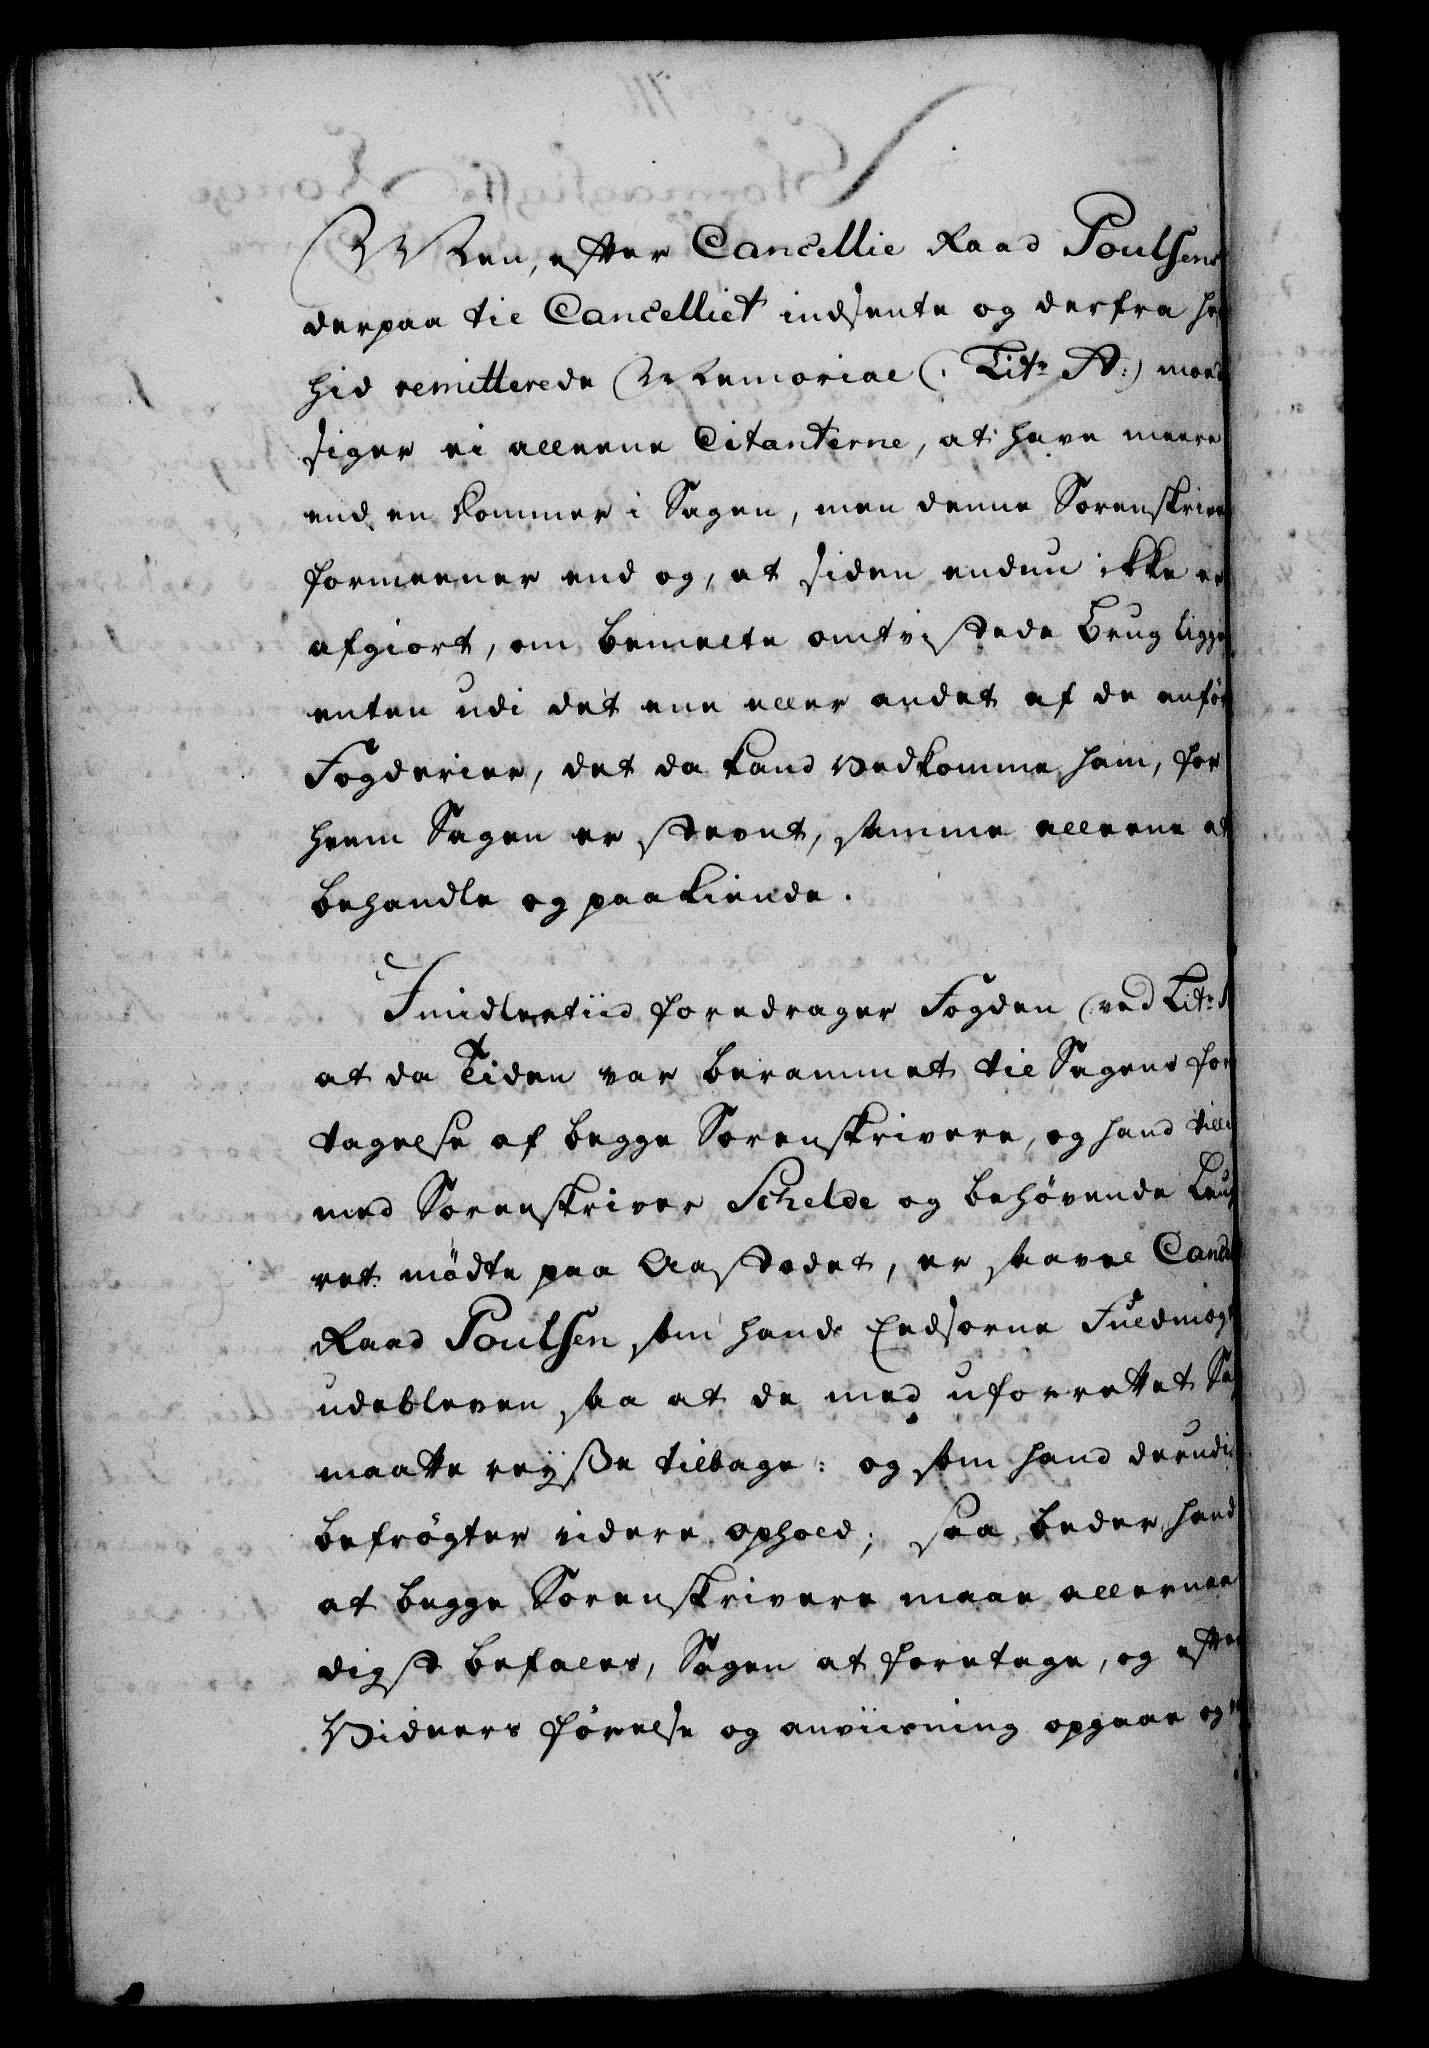 Men, efter Cancellie Raad Poulsens
derpaa til Cancelliet indsente og derfra
hid remitterede Memorial (: Litr A:)
siger ei alleene Citanterne, at have meere
end en Dommer i Sagen, men denne Sorenskriver
formeener end og, at siden endnu ikke er
afgiort, om bemelte omtvistede Brug ligge
enten udi det ene eller andet af de
Fogderier, det da kand vedkomme ham, for
hvem Sagen er stevnt, samme alleene at
behandle og paakiende.
Imidlertiid foredrager Fogden (ved Litr
at da Tiden var berammet til Sagens for
tagelse af begge Sorenskrivere, og hand
med Sorenskriver Schelde og behøvende Laug
ret mødte paa Aastædet, er saavel Cancel
Raad Poulsen som hands Eedsorne Fuldmægt
udebleven saa at de med uforrettet Sag
maatte reyße tilbage: og som hand derudi
befrøgter videre ophold; saa beder hand
at begge Sorenskrivere maae allernaa
digst befales, Sagen at foretage, og efter
Vidners førelse og anviisning opgaae og